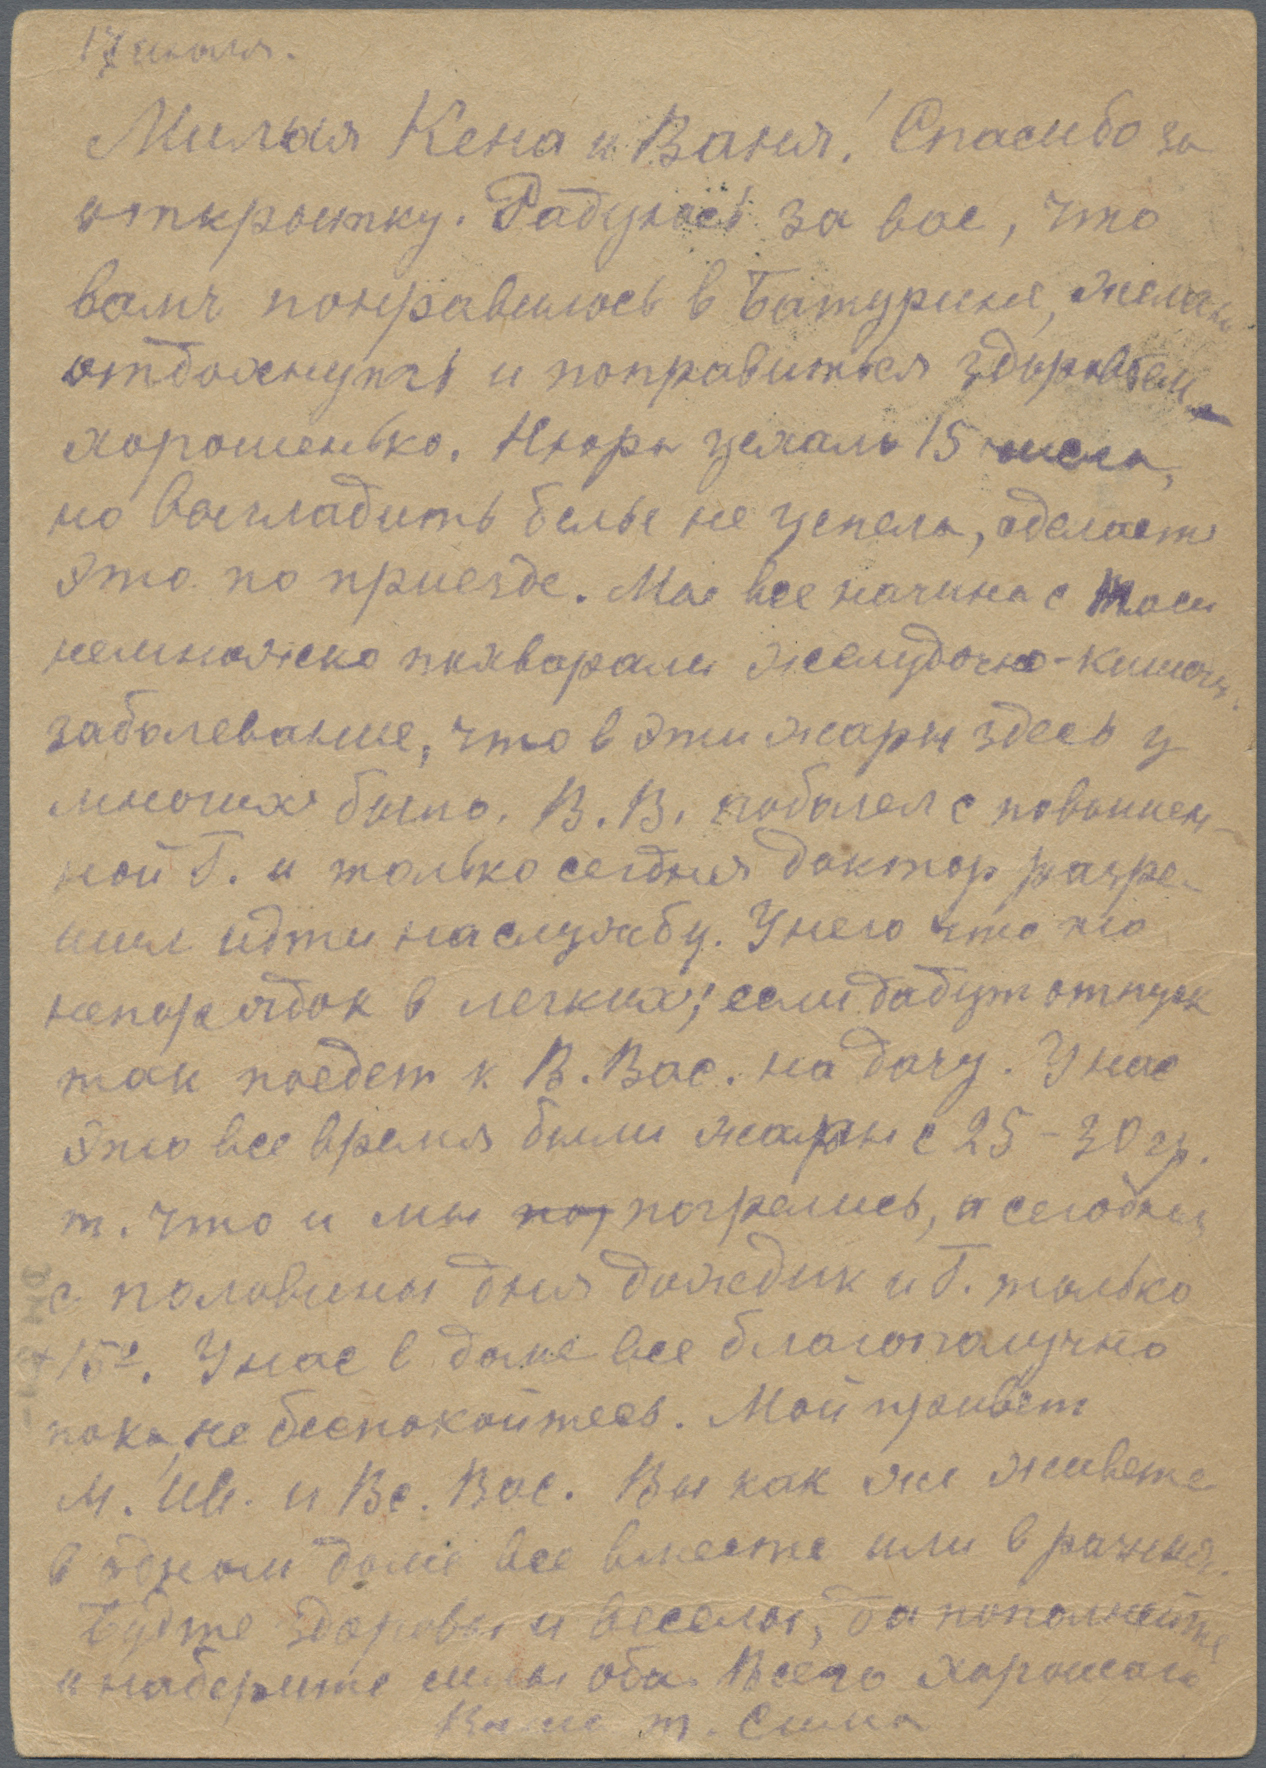 17 июля.
Милыя Кена и Ваня! Спасибо за
открытку. Радуюсь за вас, что
вам понравилось в Батурине, желаю
отдохнуть и поправиться здоровьем
хорошенько. Нюра уехала 15 числа,
но выгладить белье не успела, сделает
это по приезде. Мы все начиная с Таси
немножко похворали желудочно-кишечн.
заболевание, что в эти жары здесь у
многих было. В.В. поболел с повышен-
ной Т. и только сегодня доктор разре-
шил идти на службу. У него что то
непорядок в легких; если дадут отпуск
так поедет к В. Вас. на дачу. У нас
это все время были жары с 25-30 гр.
т. что и мы погрелись, а сегодня
с половины дня дождик и Т. только
+15°. У нас в доме все благополучно
пока, не беспокойтесь. Мой привет
М. Ив. и Вс. Вас. Вы как же живете
в одном доме все вместе или в разных.
Будте здоровы и веселы, да пополнейте
и наберите силы оба. Всего хорошаго
Ваша т. Сима